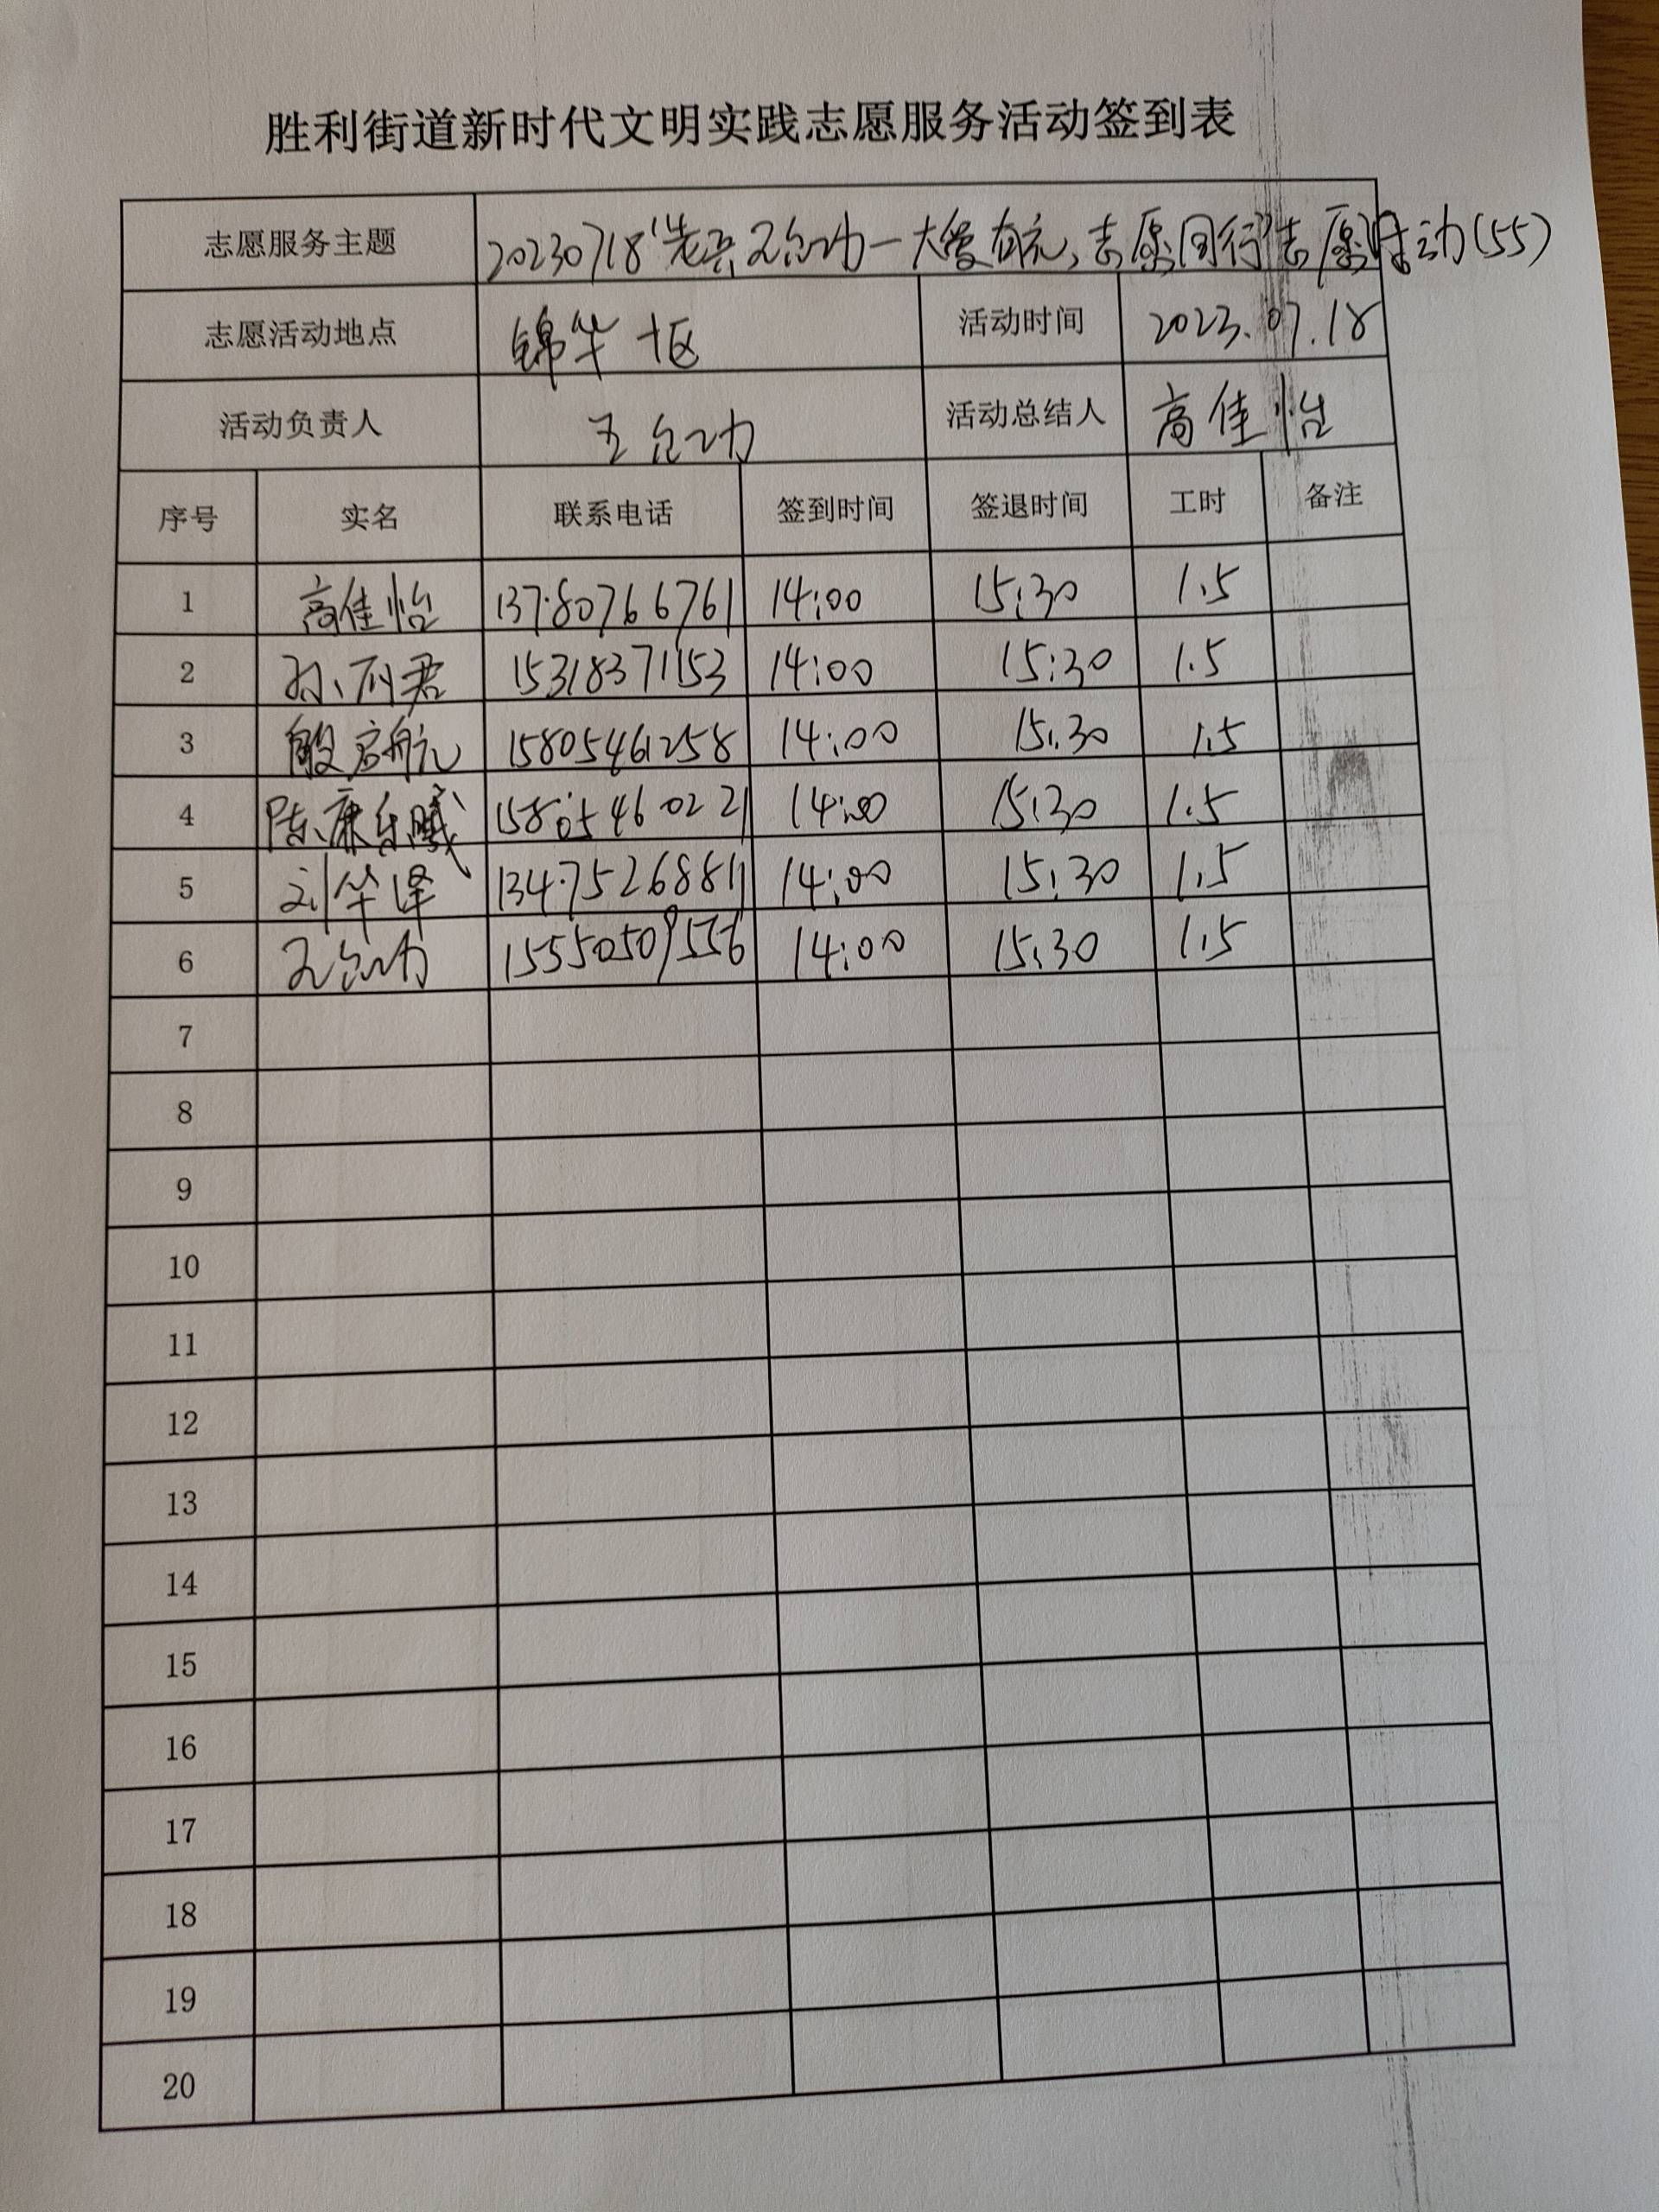 胜利街道新时代文明实践志愿服务活动签到表
志愿服务主题 20230718"老兵王立功一大爱有元,志愿同行"志愿活动(55)
志愿活动地点 锦华十区 活动时间 2023.07.18
活动负责人 王立功 活动总结人 高佳怡
序号 实名 联系电话 签到时间 签退时间 工时 备注
1 高佳怡 13780766761 14:00 15:30 1.5
2 孙君 15318371153 14:00 15:30 1.5
3 殷启航 15805461258 14:00 15:30 1.5
4 陈康乐曦 15805460221 14:00 15:30 1.5
5 刘华泽 13475268811 14:00 15:30 1.5
6 王立功 15550509556 14:00 15:30 1.5
7
8
9
10
11
12
13
14
15
16
17
18
19
20